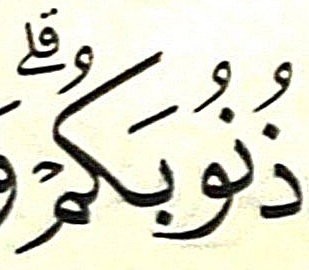 ذُنُوبَكُمْۗ